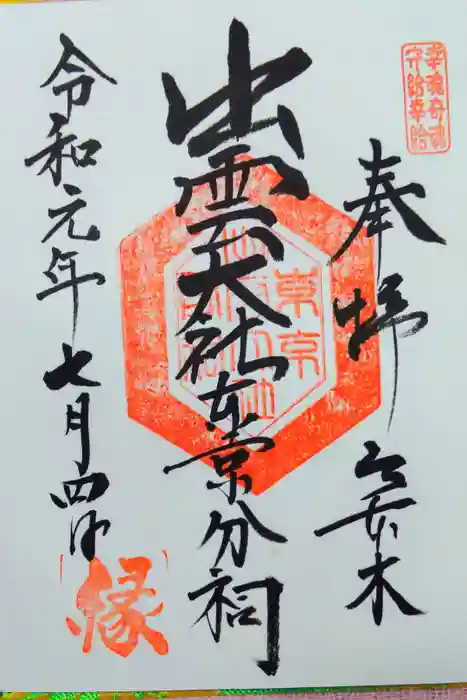 幸魂奇魂
守給幸給
奉拝 六本木
出雲大社東京分祠
東京
令和元年七月四日
縁